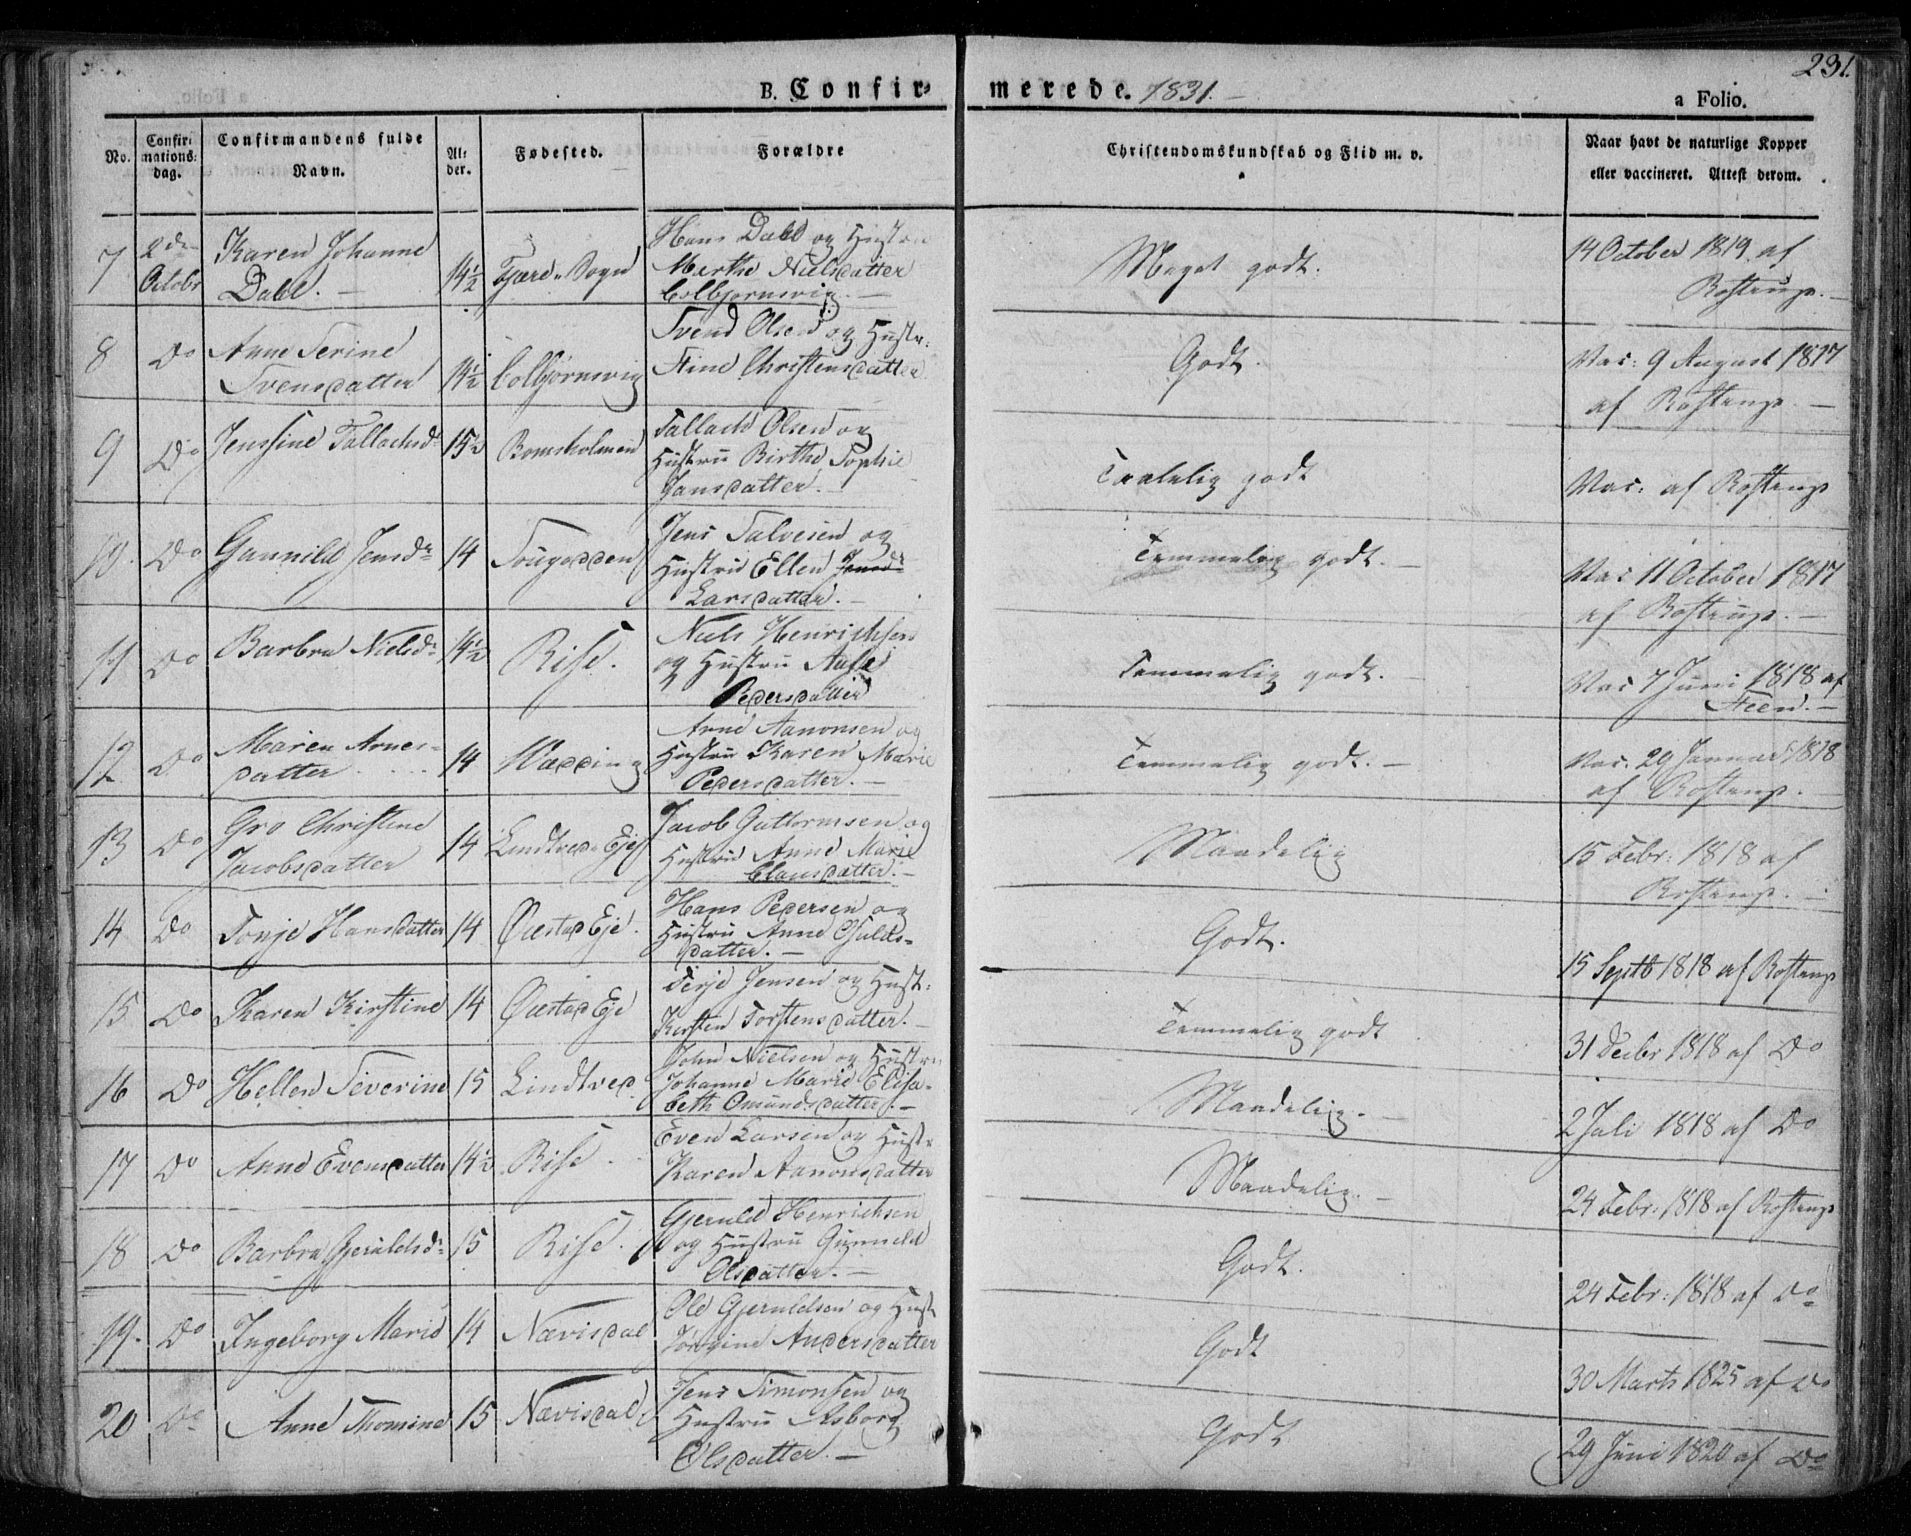 231.
B. Confir- merede. 1831. -
a Folio.
No.
Confir-
mations-
dag.
Confirmandens fulde
Navn.
Al-
der.
Fødested.
Forældre
Christendomskundskab og Flid m. v.
Naar havt de naturlige Kopper
eller vaccineret. Attest derom.
7
2den
Octobr
Karen Johanne
Dahl. -
14½
Fjære Sogn
Hans Dahl og Hustru
Marthe Nielsdatter
Colbjørnsvig. -
Meget godt.
14 October 1819 af
Rostrup. -
8
Do
Anne Serine
Svensdatter
14½
Colbjørnsvig
Svend Olsen og Hustr:
Stine Christensdatter
Godt.
Vac: 9 August 1817
af Rostrup. -
9
Do
Jenssine Tallachsdr
15½
Bomsholmen
Tallach Olsen og
Hustru Birthe Sophie
Jansdatter. -
Taalelig godt
Vac: af Rostrup
10.
Do
Gunnild Jensdr
14
Songodden
Jens Salvesen og
Hustru Ellen Jensdr
Larsdatter. -
Temmelig godt. -
Vac 11 October 1817
af Rostrup. -
11
Do
Barbra Nielsdr
14½
Rise.
Niels Henrichsen
og Hustru Aase
Pedersdatter
Temmelig godt. -
Vac 7 Juni 1818 af
Steen. -
12
Do
Maren Arnes-
datter
14
Wædding
Arne Aanonsen og
Hustru Karen Marie
Pedersdatter. -
Temmelig godt. -
Vac. 29 Januar 1818
af Rostrup. -
13
Do
Gro Christine
Jacobsdatter
14
Lindtved Eje
Jacob Guttormsen og
Hustru Anne Marie
Clausdatter. -
Maadelig
15 Febr: 1818 af
Rostrup. -
14
Do
Tonje Hansdatter
14
Øiestad Eje.
Hans Pedersen og
Hustru Anne
datter. -
Godt.
15 Septb 1818 af Rostrup
15
Do
Karen Kirstine
14
Øiestad Eje
Terje Jensen og Hust:
Kirsten Torstensdatter. -
Temmelig godt
31 Decbr 1818 af Do
16
Do
Hellen Severine
15
Lindtved
John Nielsen og Hustru
Johanne Marie Elisa-
beth Omundsdatter. -
Maadelig. -
2 Juli 1818 af Do
17
Do
Anne Evensdatter
14½
Rise
Even Larsen og Hustr
Karen Aanonsdatter
Maadelig. -
24 Febr: 1818 af Rostrup
18
Do
Barbra Gjeruldsdr
15
Rise.
Gjeruld Henrichsen
og Hustru Gunneld
Olsdatter. -
Godt.
24 Febr: 1818 af Do
19.
Do
Ingeborg Marie
14
Nævisdal
Ole Gjeruldsen og Hust
Jørgine Andersdatter
Godt
30 Marts 1825 af Do
20
Do
Anne Thomine
15
Nævisdal
Jens Simonsen og
Hustru Asborg
Olsdatter. -
Godt
29 Juni 1820 af Do